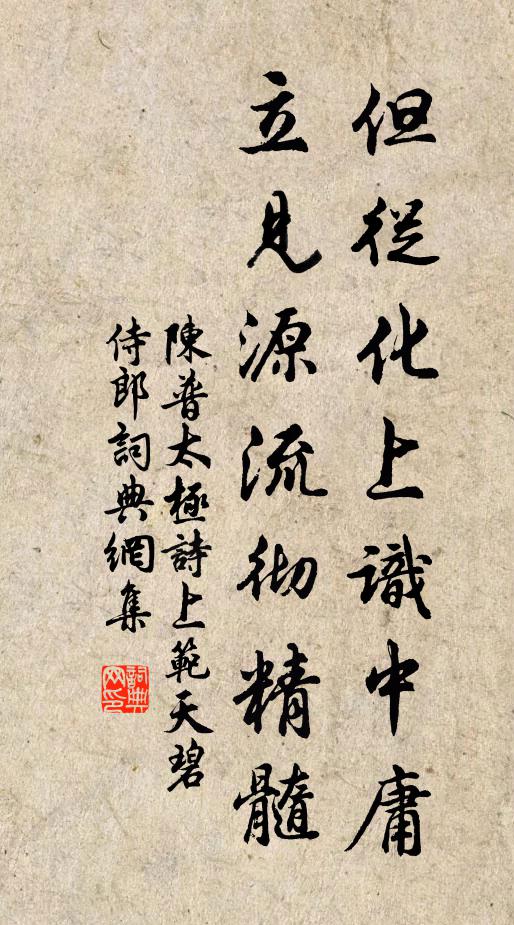 但從化上識中庸
立見源流彻精髓
陳普太極詩上範天碧
侍郎詞典網集
詞典
网印